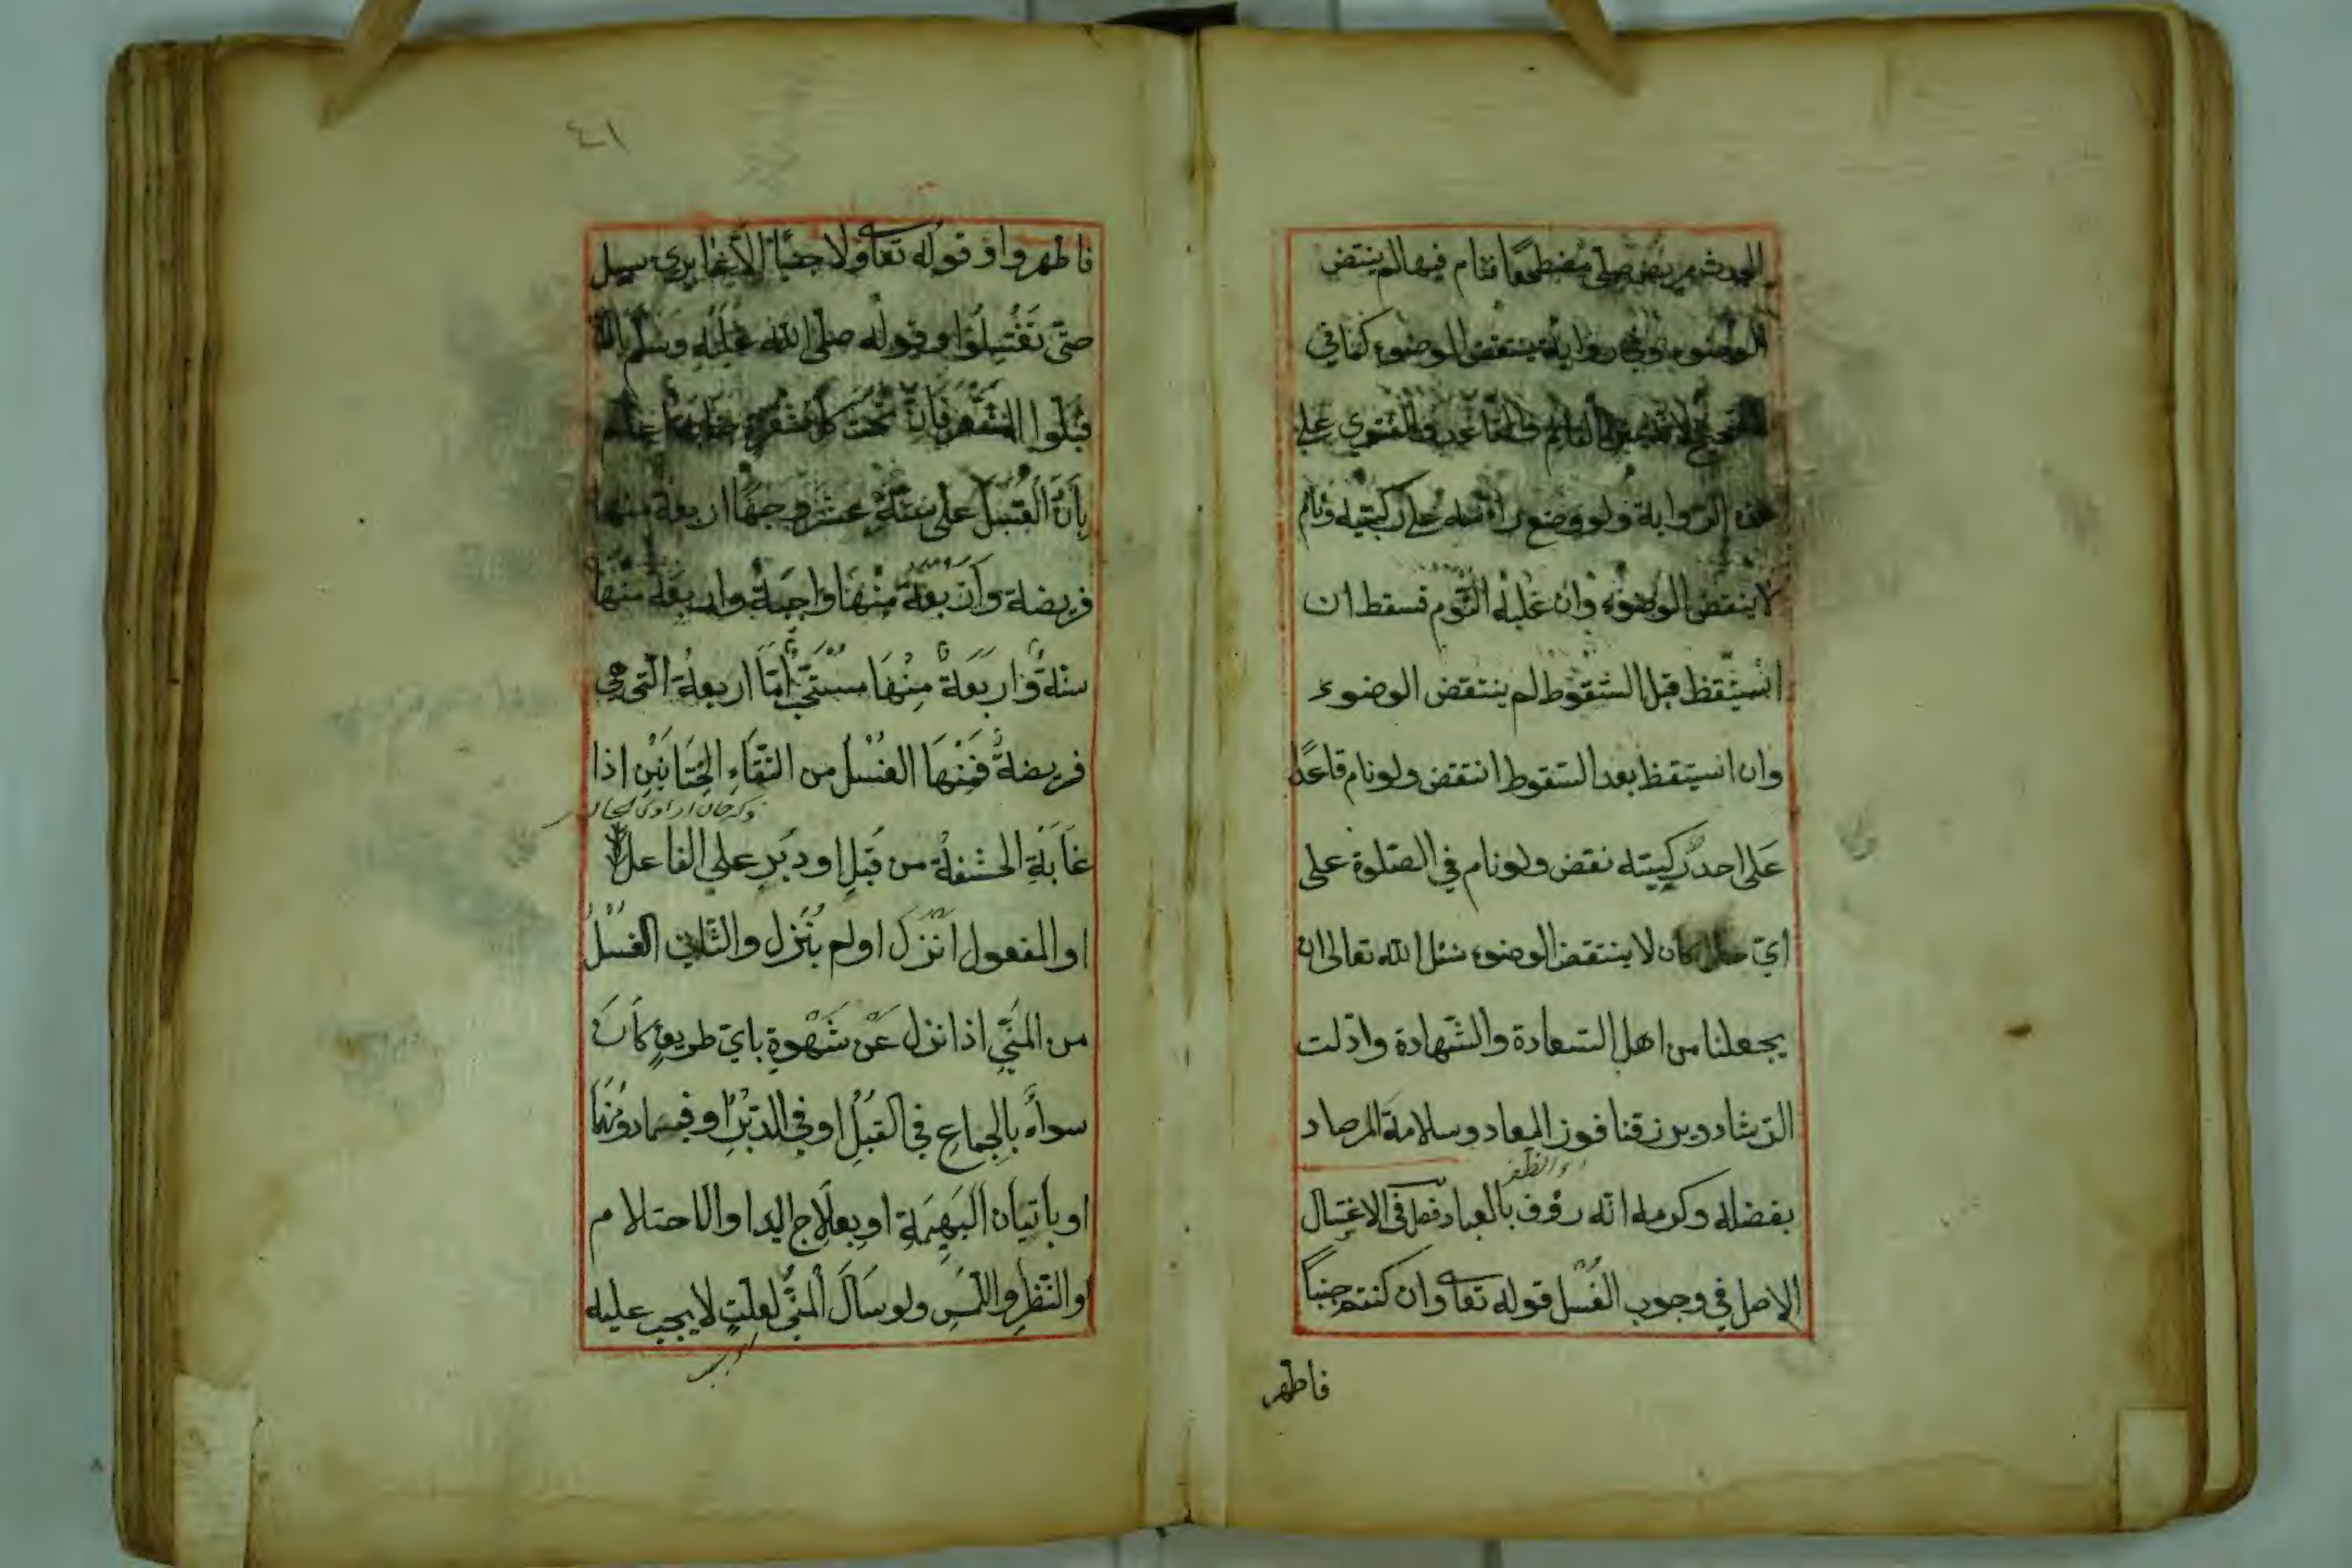 مريض صلى مضطجعا فنام فيها لم ينتقض
الوضوء وفي رواية ينتقض الوضوء كما في
والقاعد والفتوى على
هذه الرواية ولو وضع رأسه على ركبتيه ونام
لا ينتقض الوضوء وان غلبه النّوم فسقط ان
انستيقظ قبل السّقوط لم ينتقض الوضوء
وان انستيقظ بعد السّقوط انتقض ولو نام قاعدًا
عَلى احد ركبيته نقض ولو نام في الصّلوة على
ايّ حال كان لا ينتقض الوضوء نسئل الله تعالى ان
يجعلنا من اهل السّعادة والشّهادة وادّلت
الرّشاد ويرزقنا فوز المعاد وسلامة المرصاد
بفضله وكرمه انّه رؤف بالعباد فصل في الاغتسال
الاصل في وجوب الغُسْل قوله تعا وان كنتم جنباً
فاطهر
٤١
فاطهروا وقوله تعا ولا جنبًا الّا عابري سبيل
حتّى تَغْتَسِلُوا وقوله صلى الله عَلَيْهِ وَسَلَّمْ
فبلّوا الشّعْر فَاِنَّ تحت كلّ شعرة جنابة اعلم
بِاَنَّ الْغُسْلَ على ستّة عشر وجهًا اربعة منها
فريضة وَاَرْبعَةٌ مِنْهَا واجبَة واربعَة منْهَا
سنّةٌ وَاربَعَةٌ مِنْهَا مسْتَحَبٌّ اَمّا اربعة الّتى هى
فريضةٌ فَمِنْهَا الغُسْلُ من التقَاءِ الخِتَانَيْنِ اذا
غَابَةِ الحشفة من قُبلِ او دبُرِ على الفاعل
او المفعول انْزَلَ اولم يُنْزِل والثّانى الغسْلُ
من المَنَيِّ اذا نزل عَنْ شَهْوةِ باىّ طريقٍ كَانَ
سواءٌ بالجماعِ في القُبُلِ او في الدّبْرِ او فيمَا دونهُمَا
او باتيان البَهِيمَةِ او بعلَاج اليد او الاحتلام
والنّظرِ واللّمسِ ولو سَالَ الْمنىّ لعلّتٍ لا يجب عليه